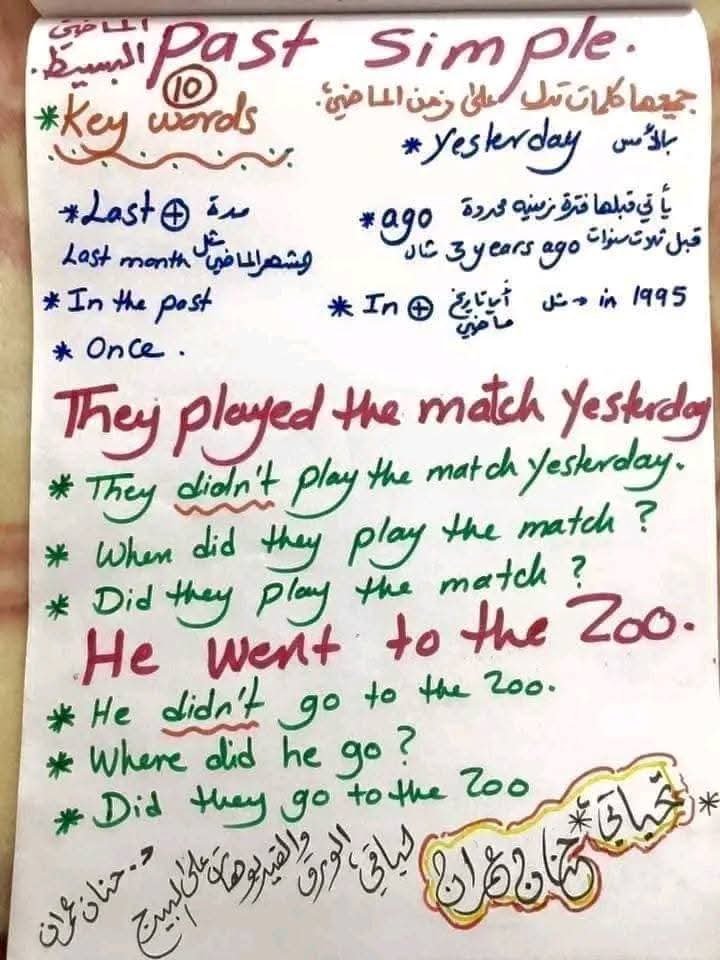 الماضي البسيط. Past Simple.
10
*Key words جميعها كلمات تدل على زمن الماضي.
* Yesterday بالأمس
*Last + مدة
Last month مثل الشهر الماضي
*ago يأتي قبلها فترة زمنية محددة
قبل ثلاث سنوات 3 years ago مثال
* In the past
* In + أي تاريخ ماضي مثل → in 1995
* Once.
They played the match Yesterday
* They didn't play the match yesterday.
* When did they play the match?
* Did they play the match?
He went to the Zoo.
* He didn't go to the Zoo.
* Where did he go?
* Did they go to the Zoo
* تحياتي *
حنان عمران
لباقي الورق والفيديوهات على البيج
د. حنان عمران